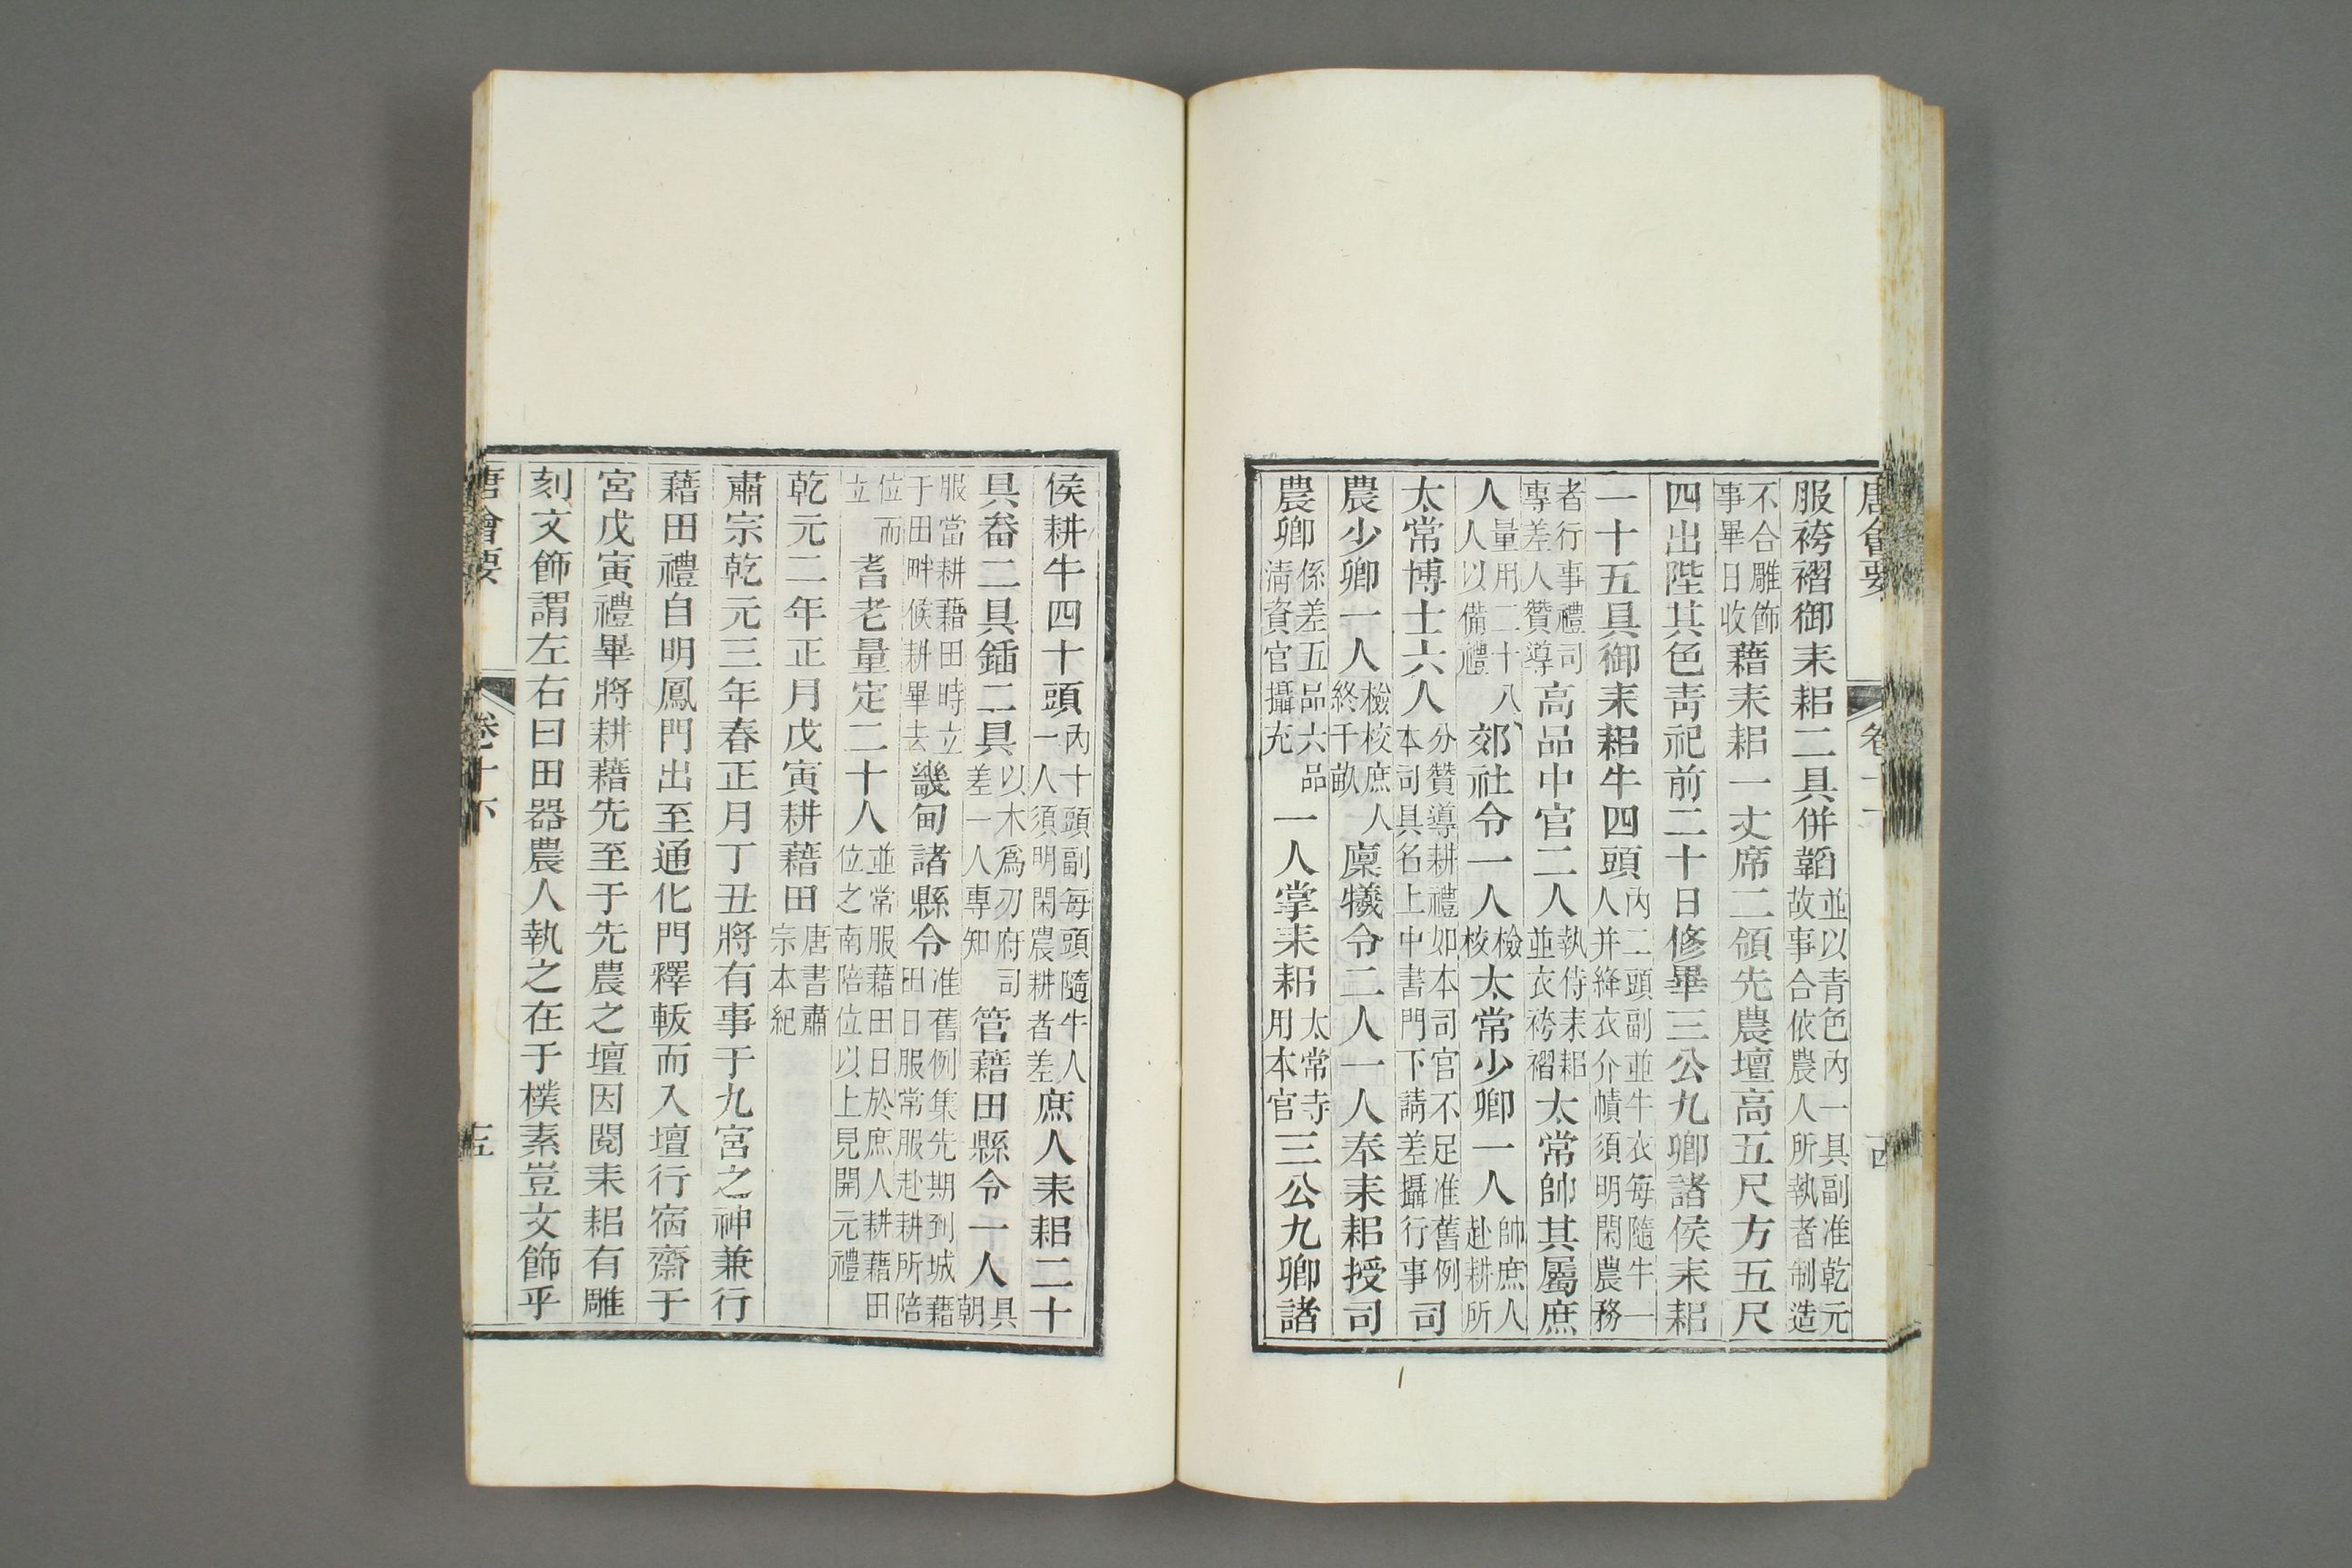 唐會要
服袴褶御耒耜二具併韜並以青色內一具副准乾元故事合依農人所執者制造
不合雕飾事畢日收藉耒耜一丈席二領先農壇高五尺方五尺
四出陛其色靑祀前二十日修畢三公九卿諸侯耒耜
一十五具御耒耜牛四頭內二頭副並牛衣每隨牛一人并絳衣介幘須明閑農務
者行事禮司專差人贊導高品中官二人執侍耒耜並衣袴褶太常帥其屬庶
人量用二十八人以備禮郊社令一人檢校太常少卿一人帥庶人赴耕所
太常博士六人分贊導耕禮如本司官不足准舊例本司具名上中書門下請差攝行事司
農少卿一人檢校庶人終千畝廩犧令二人一人奉耒耜授司
農卿係差五品六品清資官攝充一人掌耒耜太常寺用本官三公九卿諸
侯耕牛四十頭內十頭副每頭隨牛人一人須明閑農耕者差庶人耒耜二十
具畚二具鍤二具以木爲刃府司差一人專知管藉田縣令一人具朝
服當耕藉田時立于田畔候耕畢去畿甸諸縣令准舊例集先期到城藉田日服常服赴耕所陪
位而立耆老量定二十人並常服藉田日於庶人耕藉田位之南陪位以上見開元禮
乾元二年正月戊寅耕藉田唐書肅宗本紀
肅宗乾元三年春正月丁丑將有事于九宮之神兼行
藉田禮自明鳳門出至通化門釋軷而入壇行宿齋于
宮戊寅禮畢將耕藉先至于先農之壇因閱耒耜有雕
刻文飾謂左右曰田器農人執之在于樸素豈文飾乎
唐會要 卷十下